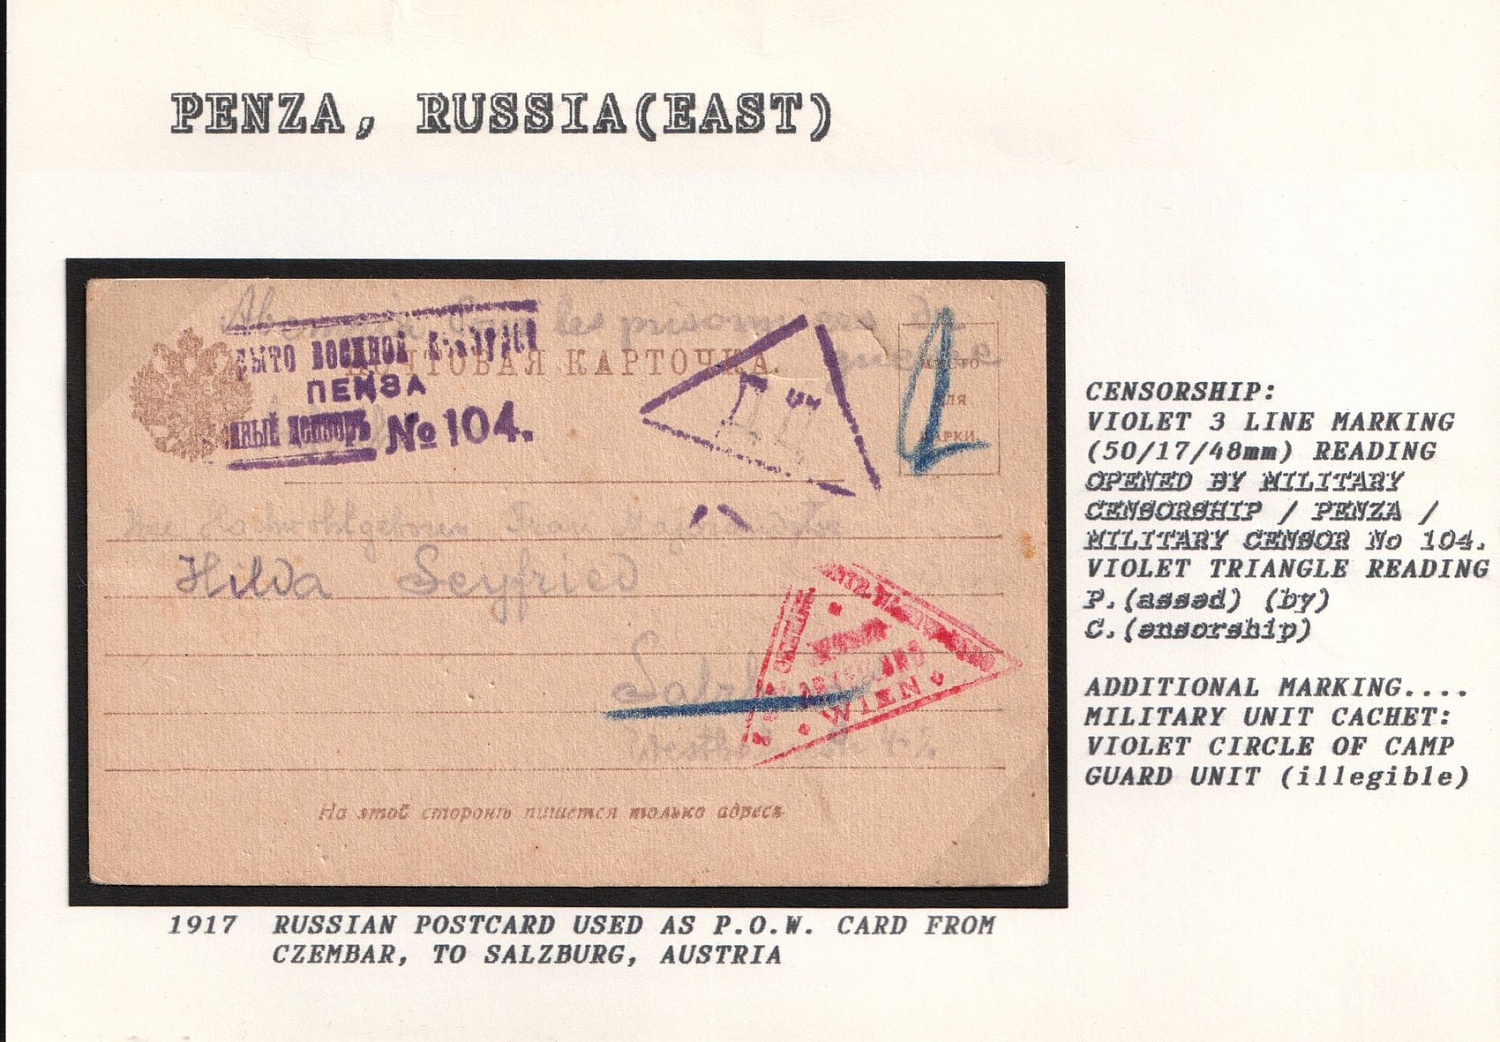 PENZA, RUSSIA(EAST)
les prisonniers de
guerre
ПОЧТОВАЯ КАРТОЧКА.
ВОЕННОЙ
ПЕНЗА
№ 104.
МѢСТО
ДЛЯ
МАРКИ
Frau
Hilda Seyfried
Salzburg
WIEN
На этой сторонѣ пишется только адресъ
CENSORSHIP:
VIOLET 3 LINE MARKING
(50/17/48mm) READING
OPENED BY MILITARY
CENSORSHIP / PENZA /
MILITARY CENSOR No 104.
VIOLET TRIANGLE READING
P.(assed) (by)
C.(ensorship)
ADDITIONAL MARKING....
MILITARY UNIT CACHET:
VIOLET CIRCLE OF CAMP
GUARD UNIT (illegible)
1917 RUSSIAN POSTCARD USED AS P.O.W. CARD FROM
CZEMBAR, TO SALZBURG, AUSTRIA